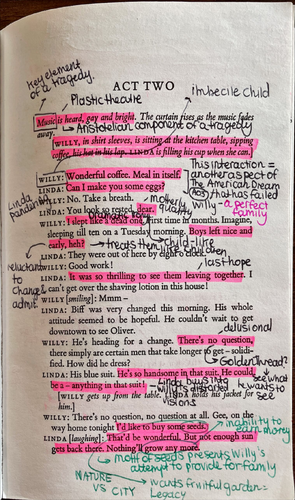 Key element
of a tragedy.
ACT TWO
Plastic theatre
imbecile child
Music is heard, gay and bright. The curtain rises as the music fades
away.
Aristotelian component of a tragedy
WILLY, in shirt sleeves, is sitting at the kitchen table, sipping
coffee, his hat in his lap. LINDA is filling his cup when she can.
WILLY: Wonderful coffee. Meal in itself.
LINDA: Can I make you some eggs?
WILLY: No. Take a breath.
LINDA: You look so rested, dear.
This interaction =
another aspect of
The American Dream
that has failed
Willy - a perfect
family
Linda
pandering
motherly
quality
Dramatic
WILLY: I slept like a dead one. First time in months. Imagine,
sleeping till ten on a Tuesday morning. Boys left nice and
early, heh?
treats them
child-like
LINDA: They were out of here by eight o'clock.
WILLY: Good work!
last hope
reluctant
to
change/
admit
LINDA: It was so thrilling to see them leaving together. I
can't get over the shaving lotion in this house!
WILLY [smiling]: Mmm –
LINDA: Biff was very changed this morning. His whole
attitude seemed to be hopeful. He couldn't wait to get
downtown to see Oliver.
delusional
WILLY: He's heading for a change. There's no question,
there simply are certain men that take longer to get – solidi-
fied. How did he dress?
Golden Thread?
LINDA: His blue suit. He's so handsome in that suit. He could
be a – anything in that suit!
Linda buys into
Willy's distorted
visions
see what
he wants to
see
[WILLY gets up from the table. LINDA holds his jacket for
him.]
WILLY: There's no question, no question at all. Gee, on the
way home tonight I'd like to buy some seeds.
inability to
earn money
LINDA [laughing]: That'd be wonderful. But not enough sun
gets back there. Nothing'll grow any more.
motif of seeds presents Willy's
attempt to provide for family
NATURE
VS CITY
wants fruitful garden-
Legacy